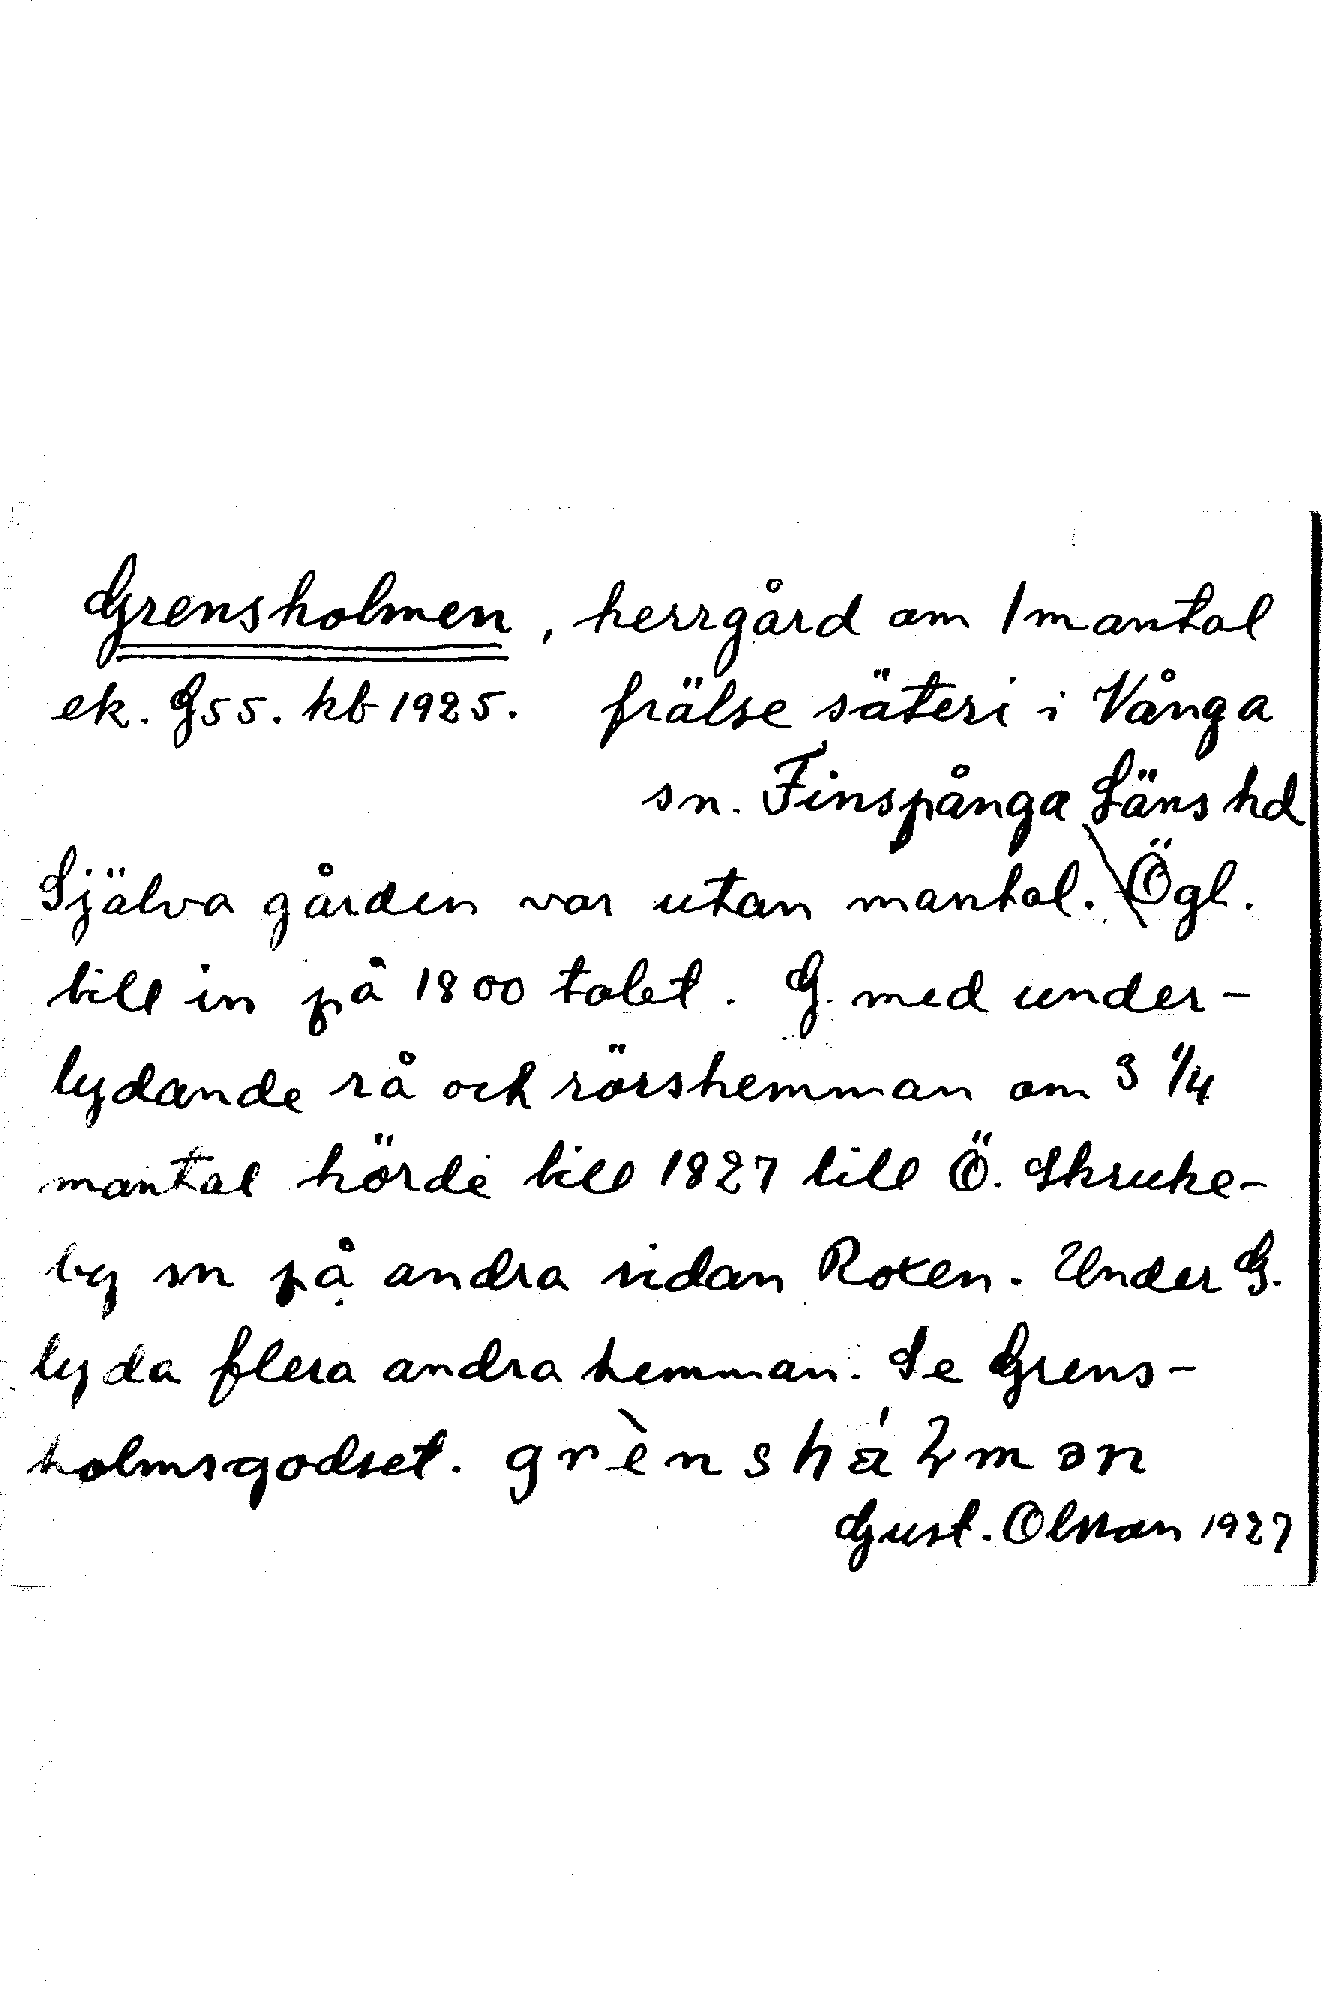 Grensholmen, herrgård om 1 mantal
ek. G55. kb 1925. frälse säteri i Vånga
sn. Finspånga Läns hd
Själva gården var utan mantal. Ögl.
till in på 1800 talet. G. med under-
lydande rå och rörshemman om 3 1/4
mantal hörde till 1827 till Ö. Skruke-
by sn på andra sidan Roxen. Under G.
lyda flera andra hemman. Se Grens-
holmsgodset. grènshá
Gust. Olsson 1927